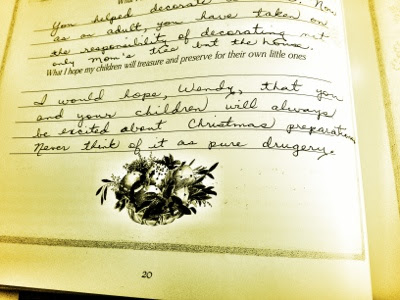 You helped decorate Now,
as an adult you have taken on
the responsibility of decorating not
only mom's tree but the house.
What I hope my children will treasure and preserve for their own little ones
I would hope, Wendy, that you
and your children will always
be excited about Christmas preparations
Never think of it as pure drugery.
20